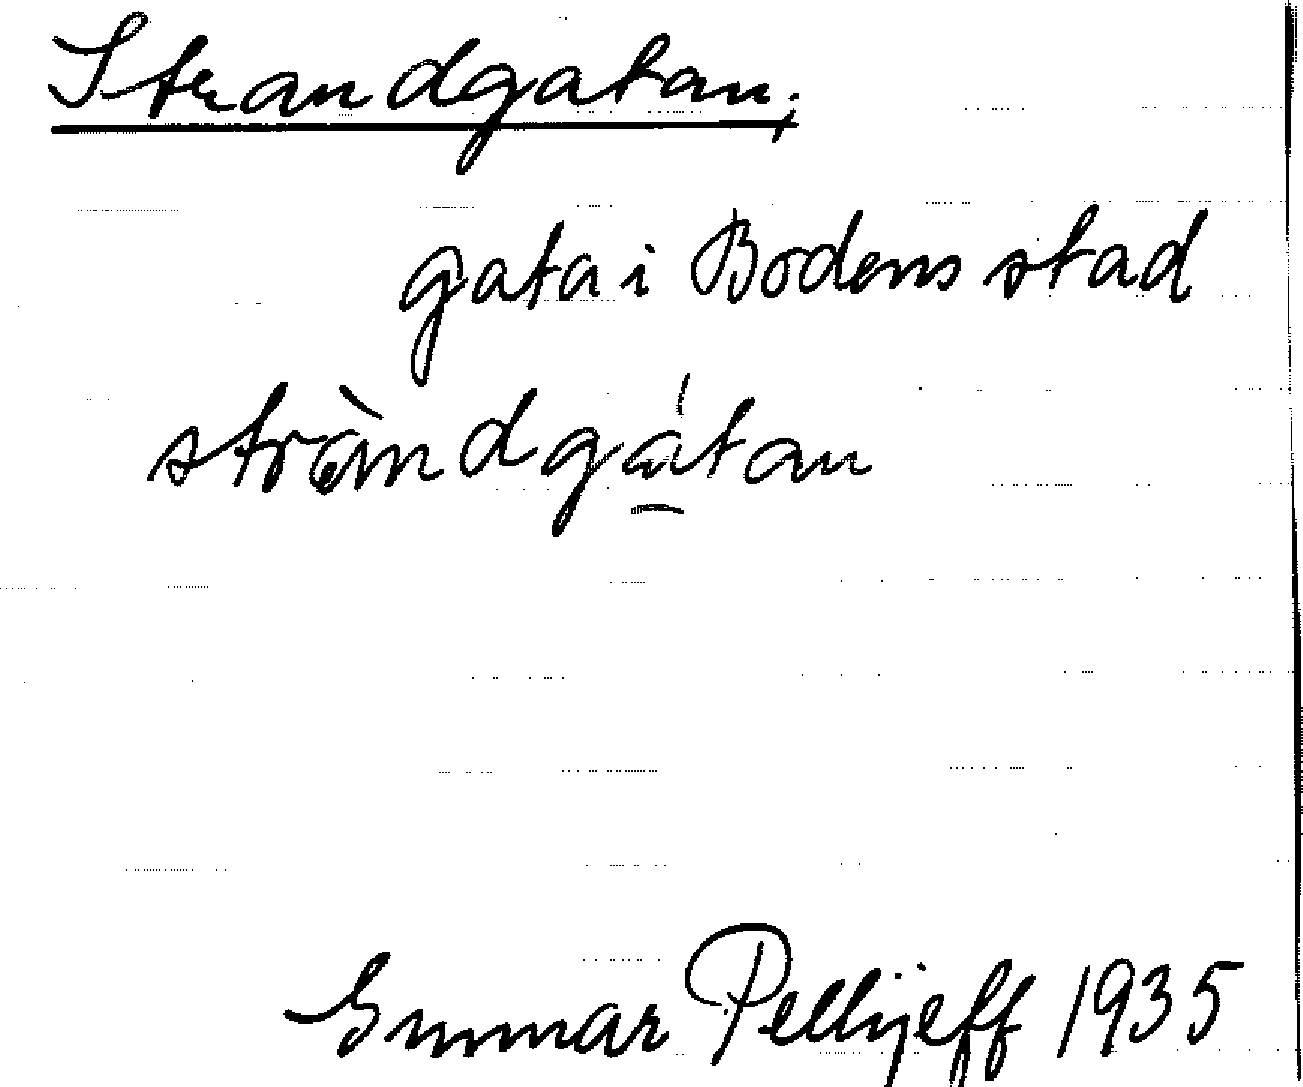 Strandgatan;
gata i Bodens stad
stràndga̱´tan
Gunnar Pellijeff 1935